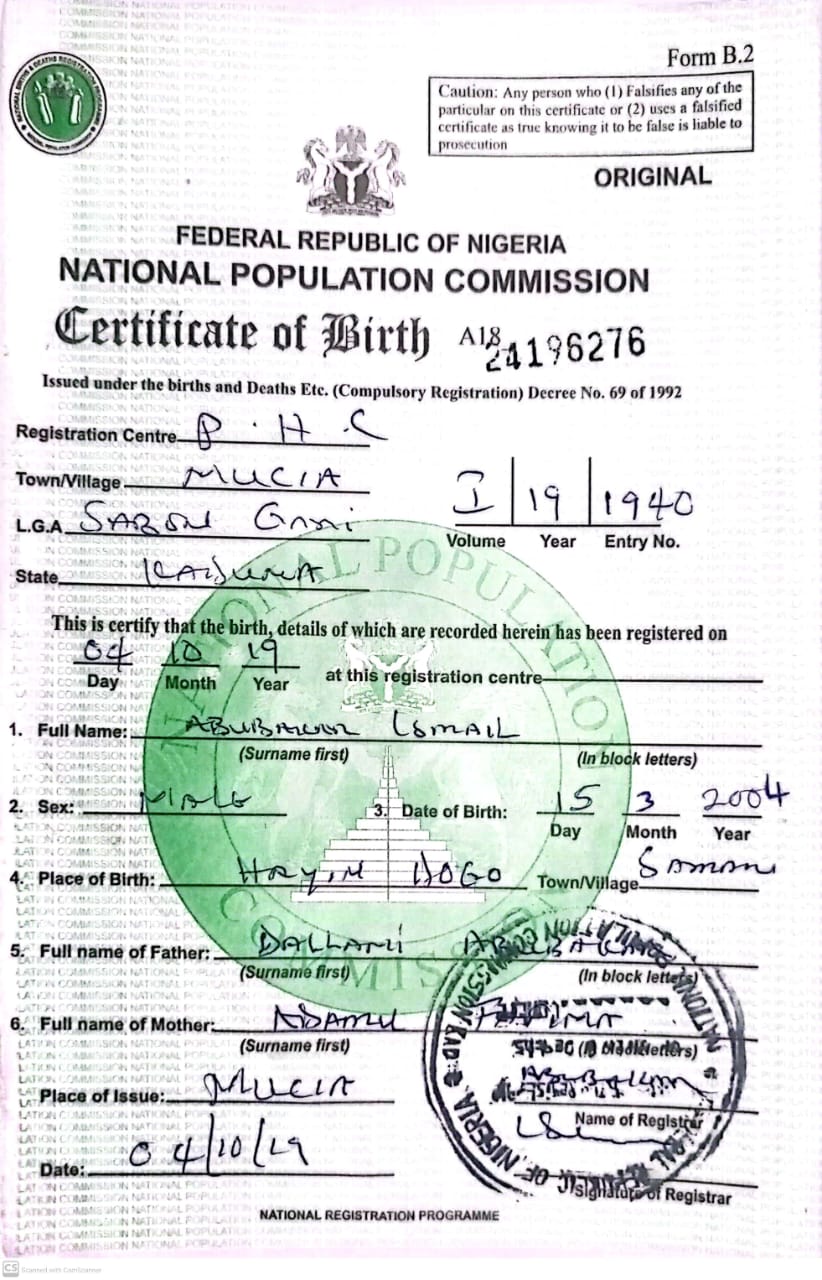 NATIONAL BIRTHS & DEATHS REGISTRATION PROGRAMME
Form B.2
Caution: Any person who (1) Falsifies any of the
particular on this certificate or (2) uses a falsified
certificate as true knowing it to be false is liable to
prosecution
ORIGINAL
FEDERAL REPUBLIC OF NIGERIA
NATIONAL POPULATION COMMISSION
Certificate of Birth A18 24196276
Issued under the births and Deaths Etc. (Compulsory Registration) Decree No. 69 of 1992
Registration Centre P.H.C
Town/Village MUCIA
L.G.A SABON Gari
I 19 1940
Volume Year Entry No.
State KADUNA
This is certify that the birth, details of which are recorded herein has been registered on
04 10 19
Day Month Year at this registration centre
1. Full Name: ABUBAKAR ISMAIL
(Surname first) (In block letters)
2. Sex: MALE 3. Date of Birth: 15 3 2004
Day Month Year
4. Place of Birth: HAYIN DOGO Town/Village SAMARU
5. Full name of Father: DALLAMI ABUBAKAR
(Surname first) (In block letters)
6. Full name of Mother: ADAMU FATIMA
(Surname first) (In block letters)
Place of Issue: MUCIA
Name of Registrar
Date: 04/10/19
Signature of Registrar
NATIONAL REGISTRATION PROGRAMME
NATIONAL POPULATION COMMISSION
CS Scanned with CamScanner